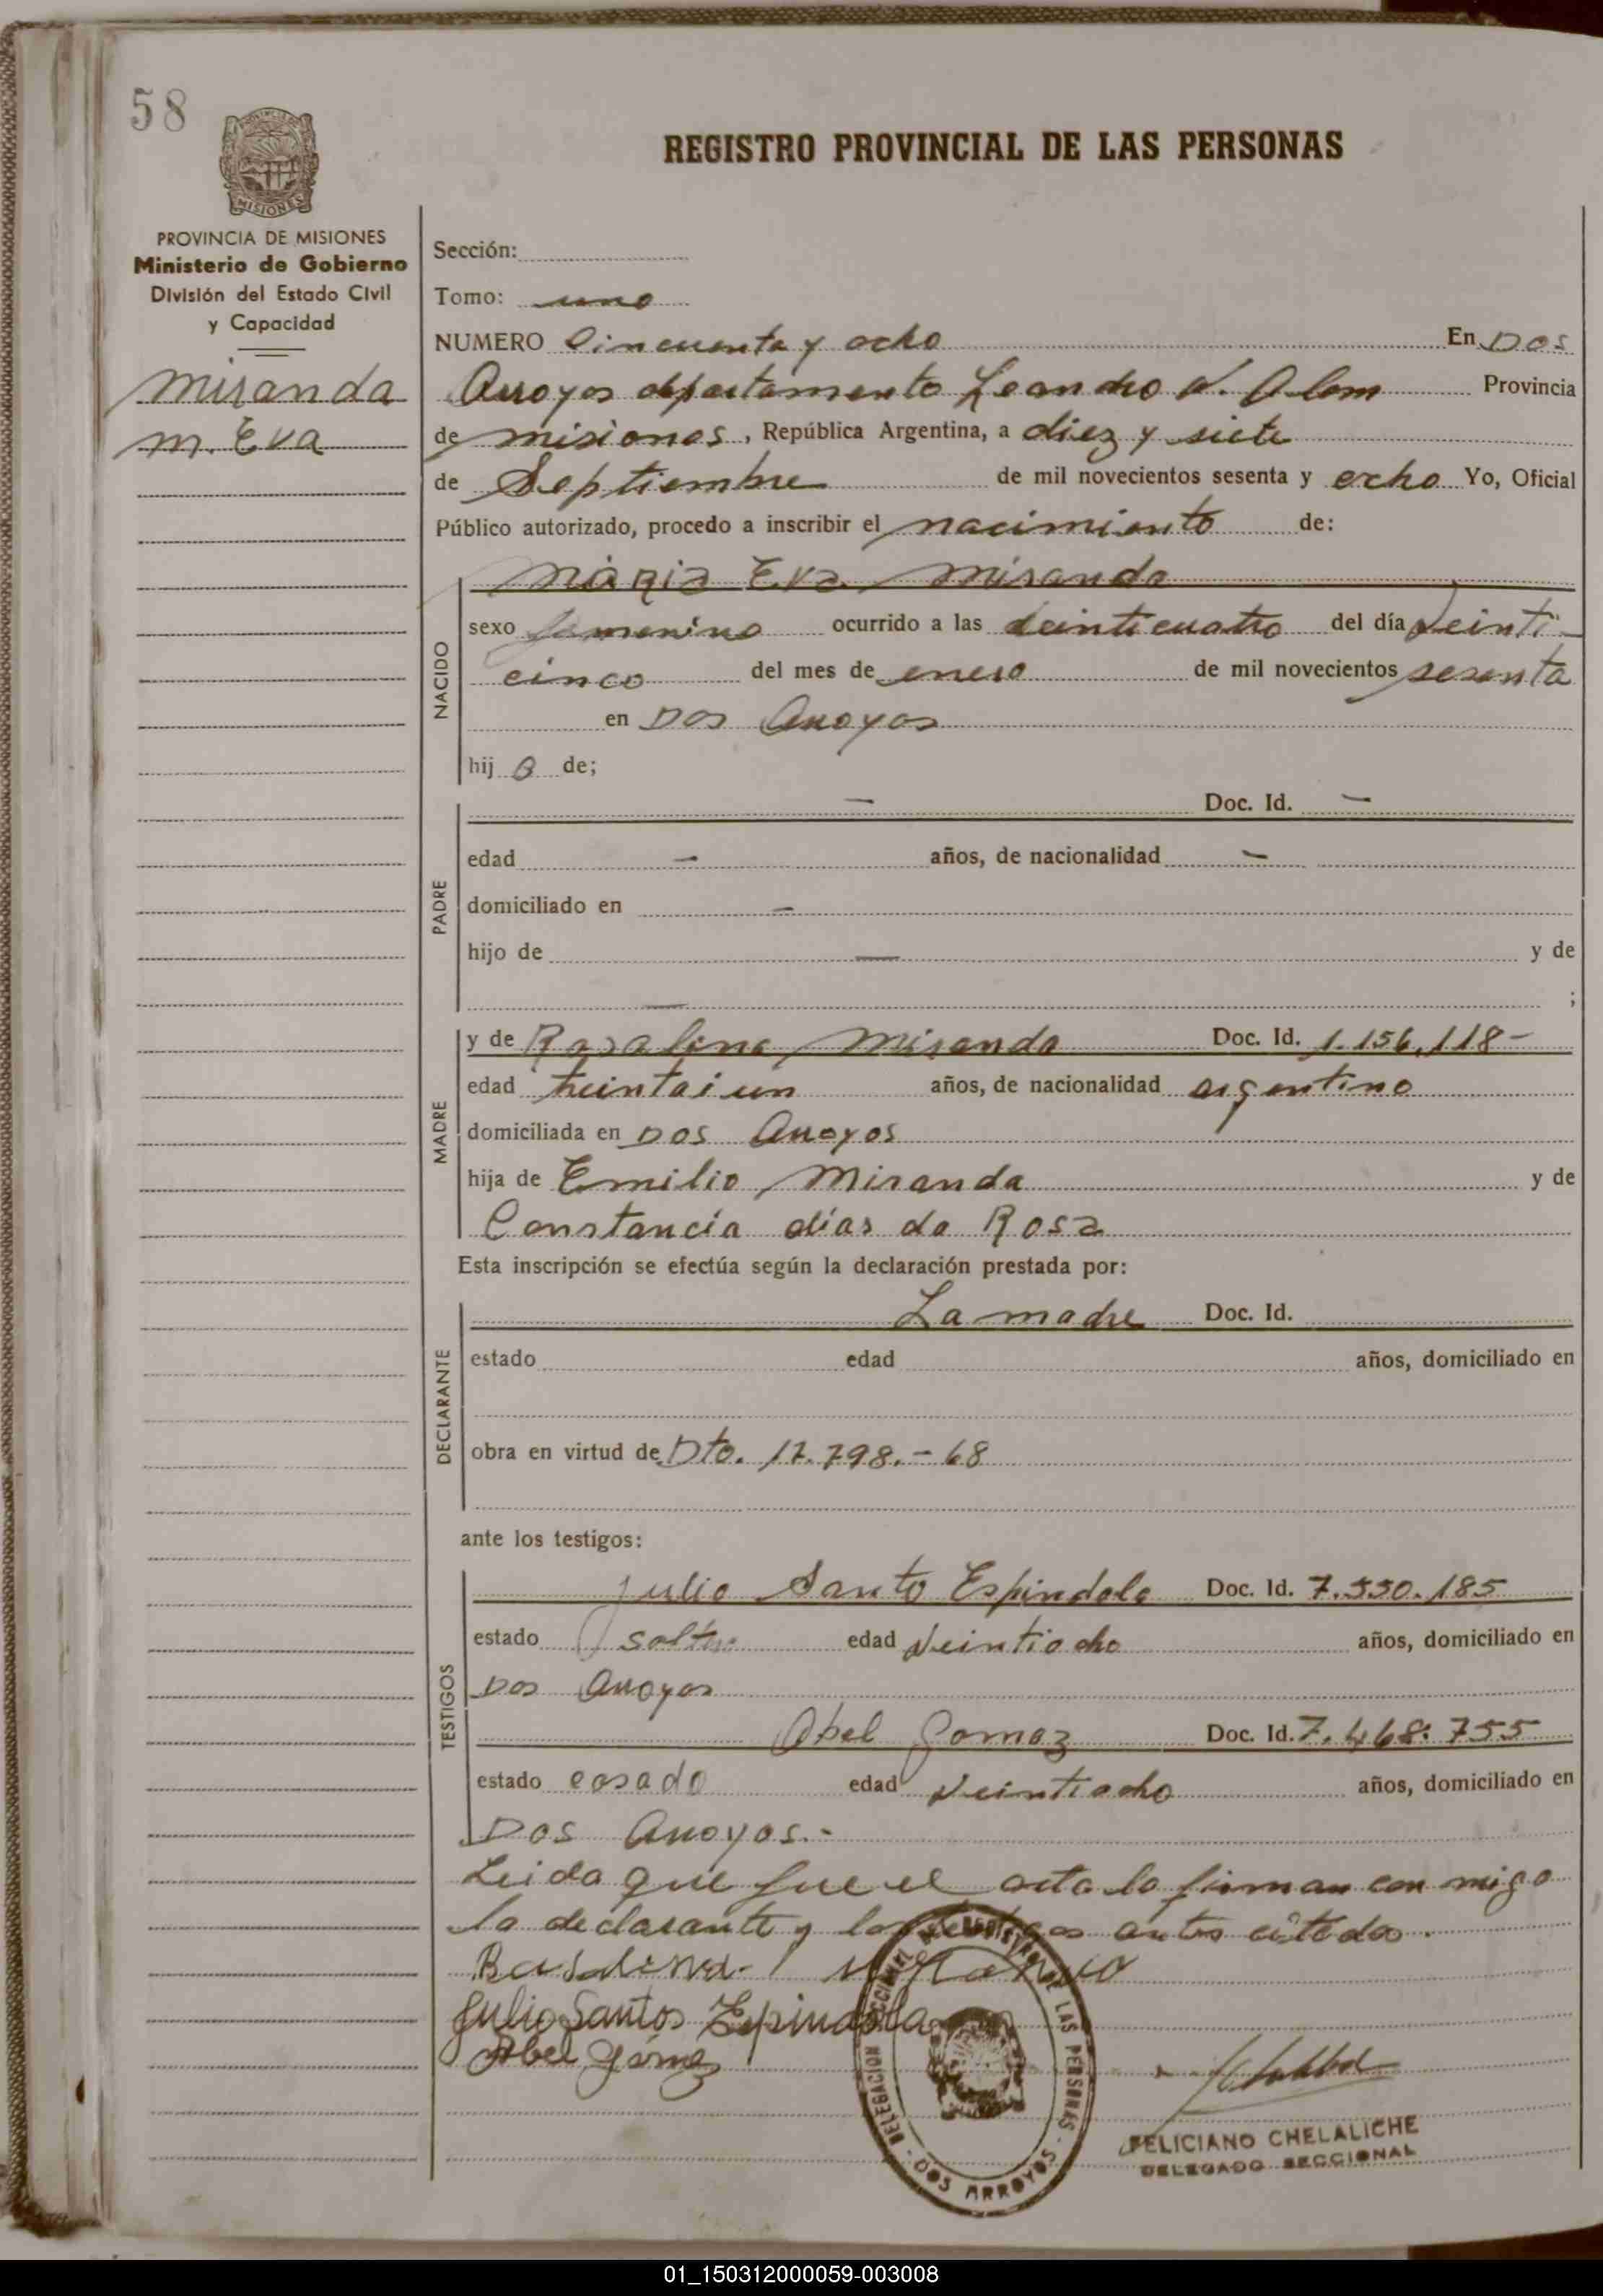 58
REGISTRO PROVINCIAL DE LAS PERSONAS
MISIONES
PROVINCIA DE MISIONES
Ministerio de Gobierno
División del Estado Civil
y Capacidad
Miranda
M. Eva
Sección:
Tomo: uno
NUMERO Cincuenta y ocho En Dos
Arroyos departamento Leandro N. Alem Provincia
de misiones, República Argentina, a diez y siete
de Septiembre de mil novecientos sesenta y ocho Yo, Oficial
Público autorizado, procedo a inscribir el nacimiento de:
NACIDO
Maria Eva Miranda
sexo femenino ocurrido a las veinticuatro del día veinti-
cinco del mes de enero de mil novecientos sesenta
en Dos Arroyos
hij a de;
PADRE
— Doc. Id. —
edad — años, de nacionalidad —
domiciliado en —
hijo de — y de
— ;
MADRE
y de Rosalina Miranda Doc. Id. 1.156.118-
edad treintaiun años, de nacionalidad argentino
domiciliada en Dos Arroyos
hija de Emilio Miranda y de
Constancia dias da Rosa
Esta inscripción se efectúa según la declaración prestada por:
DECLARANTE
La madre Doc. Id.
estado edad años, domiciliado en
obra en virtud de Dto. 17.798.-68
ante los testigos:
TESTIGOS
Julio Santo Espindola Doc. Id. 7.550.185
estado soltero edad veintiocho años, domiciliado en
Dos Arroyos
Abel Gomez Doc. Id. 7.468.755
estado casado edad veintiocho años, domiciliado en
Dos Arroyos.-
Leida que fue el acta la firman con migo
la declarante y los testigos antes citados.
Rosalina
Julio Santos Espindola
Abel Gómez
DELEGACION SECCIONAL DEL REGISTRO DE LAS PERSONAS - DOS ARROYOS -
FELICIANO CHELALICHE
DELEGADO SECCIONAL
01_150312000059-003008